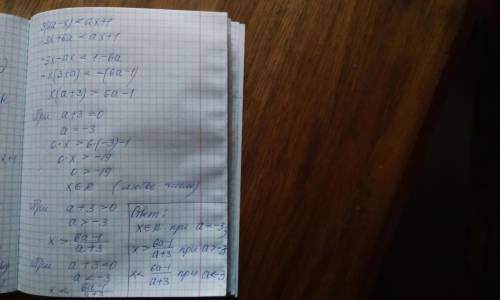 3(2a-x) < ax+1
-3x+6a < ax+1
-3x-ax < 1-6a
-x(3+a) < -(6a-1)
x(a+3) > 6a-1
При a+3=0
a=-3
0·x > 6·(-3)-1
0·x > -19
0 > -19
x∈R (любое число)
При a+3>0
a>-3
x > (6a-1)/(a+3)
При a+3<0
a<-3
x < (6a-1)/(a+3)
Ответ:
x∈R при a=-3;
x > (6a-1)/(a+3) при a>-3
x < (6a-1)/(a+3) при a<-3